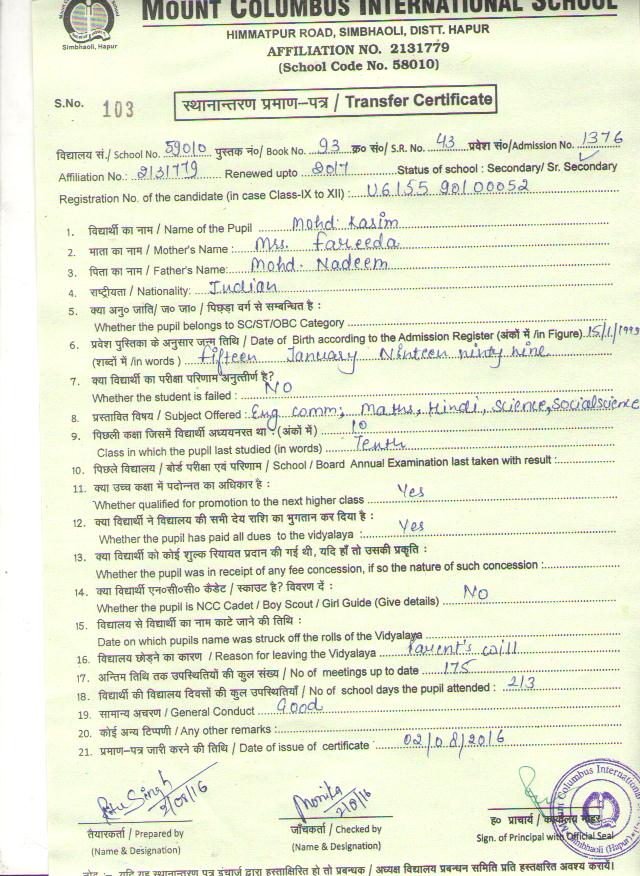 MOUNT COLUMBUS INTERNATIONAL SCHOOL
Simbhaoli, Hapur
HIMMATPUR ROAD, SIMBHAOLI, DISTT. HAPUR
AFFILIATION NO. 2131779
(School Code No. 58010)
S.No. 103
स्थानान्तरण प्रमाण–पत्र / Transfer Certificate
विद्यालय सं./ School No. 59010 पुस्तक नं०/ Book No. 93 क्र० सं०/ S.R. No. 43 प्रवेश सं०/Admission No. 1376
Affiliation No.: 2131779 Renewed upto 2017 Status of school : Secondary/ Sr. Secondary
Registration No. of the candidate (in case Class-IX to XII) : U615590100052
1. विद्यार्थी का नाम / Name of the Pupil Mohd. Kasim
2. माता का नाम / Mother's Name : Mrs. Fareeda
3. पिता का नाम / Father's Name: Mohd. Nadeem
4. राष्ट्रीयता / Nationality: Indian
5. क्या अनु० जाति/ ज० जा० / पिछड़ा वर्ग से सम्बन्धित है :
Whether the pupil belongs to SC/ST/OBC Category
6. प्रवेश पुस्तिका के अनुसार जन्म तिथि / Date of Birth according to the Admission Register (अंकों में /in Figure) 15/1/1999
(शब्दों में /in words ) fifteen January Ninteen ninty nine
7. क्या विद्यार्थी का परीक्षा परिणाम अनुत्तीर्ण है?
Whether the student is failed : NO
8. प्रस्तावित विषय / Subject Offered : Eng comm, Maths, Hindi, Science, Socialscience
9. पिछली कक्षा जिसमें विद्यार्थी अध्ययनरत था : (अंकों में ) 10
Class in which the pupil last studied (in words) Tenth
10. पिछले विद्यालय / बोर्ड परीक्षा एवं परिणाम / School / Board Annual Examination last taken with result :
11. क्या उच्च कक्षा में पदोन्नत का अधिकार है :
Whether qualified for promotion to the next higher class Yes
12. क्या विद्यार्थी ने विद्यालय की सभी देय राशि का भुगतान कर दिया है :
Whether the pupil has paid all dues to the vidyalaya : Yes
13. क्या विद्यार्थी को कोई शुल्क रियायत प्रदान की गई थी, यदि हाँ तो उसकी प्रकृति :
Whether the pupil was in receipt of any fee concession, if so the nature of such concession :
14. क्या विद्यार्थी एन०सी०सी० कैडेट / स्काउट है? विवरण दें :
Whether the pupil is NCC Cadet / Boy Scout / Girl Guide (Give details) No
15. विद्यालय से विद्यार्थी का नाम काटे जाने की तिथि :
Date on which pupils name was struck off the rolls of the Vidyalaya
16. विद्यालय छोड़ने का कारण / Reason for leaving the Vidyalaya Parent's will
17. अन्तिम तिथि तक उपस्थितियों की कुल संख्य / No of meetings up to date 175
18. विद्यार्थी की विद्यालय दिवसों की कुल उपस्थितियाँ / No of school days the pupil attended : 213
19. सामान्य अचरण / General Conduct Good
20. कोई अन्य टिप्पणी / Any other remarks :
21. प्रमाण-पत्र जारी करने की तिथि / Date of issue of certificate 02/08/2016
Monika
2/8/16
तैयारकर्ता / Prepared by
(Name & Designation)
जाँचकर्ता / Checked by
(Name & Designation)
ह० प्राचार्य / कार्यालय मोहर
Sign. of Principal with Official Seal
Mount Columbus International
Simbhaoli (Hapur)
नोट :– यदि यह स्थानान्तरण पत्र इंचार्ज द्वारा हस्ताक्षरित हो तो प्रबन्धक / अध्यक्ष विद्यालय प्रबन्धन समिति प्रति हस्तक्षरित अवश्य करायें।